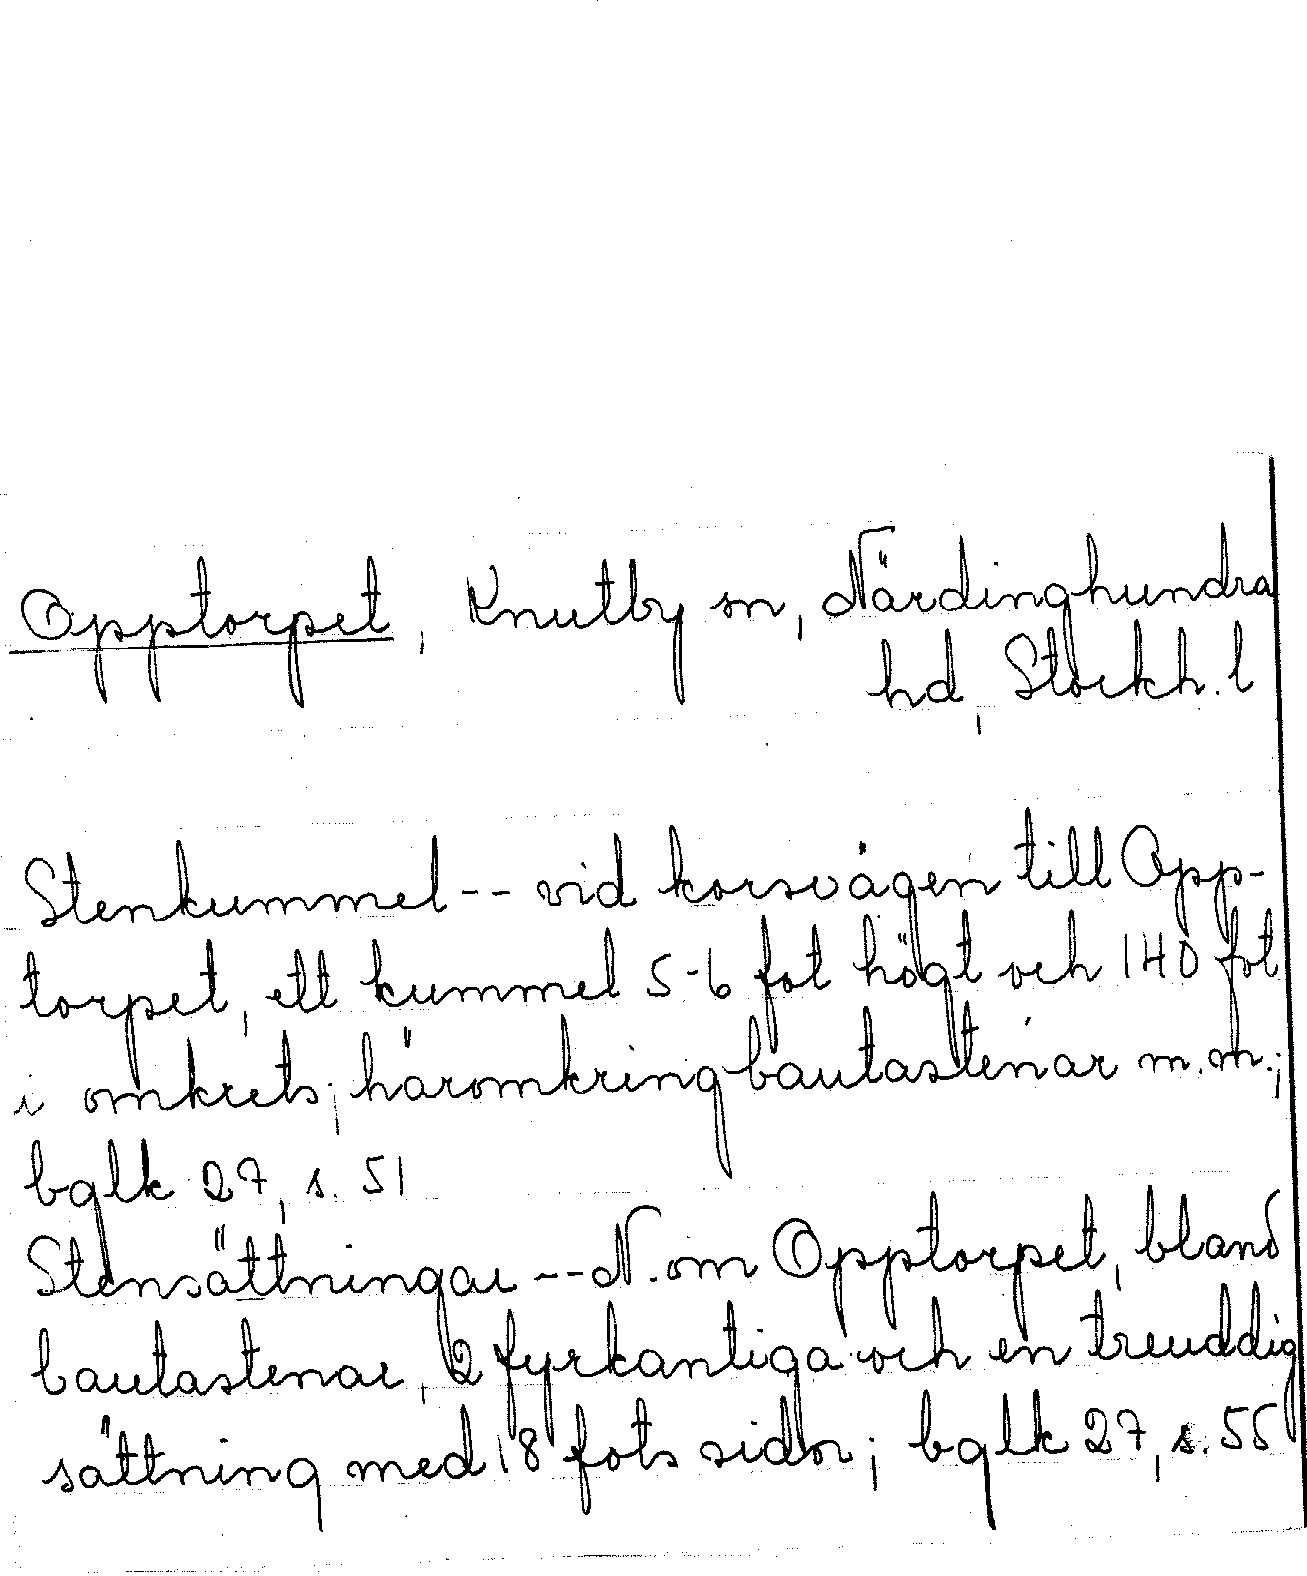 Opptorpet, Knutby sn, Närdinghundra
hd, Stockh. l
Stenkummel -- vid korsvägen till Opp-
torpet, ett kummel 5-6 fot högt och 140 fot
i omkrets; häromkring bautastenar m.m.;
bglk 27, s. 51
Stensättningar -- N. om Opptorpet, bland
bautastenar, 2 fyrkantiga och en treuddig
sättning med 18 fots sidor; bglk 27, s. 55